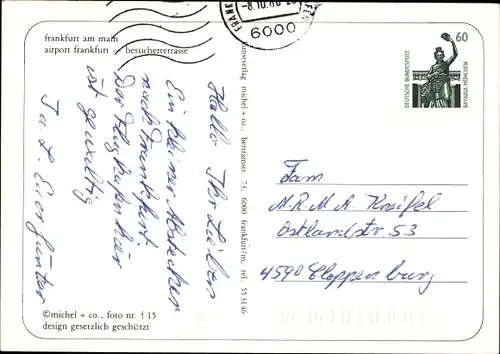 frankfurt am main
airport frankfurt – besucherterrasse
Hallo Ihr Lieben
Ein kleiner Abstecher
nach Frankfurt
Der Flughafen hier
ist gewaltig
Euer Günter
©michel + co., foto nr. f 15
design gesetzlich geschützt
michel + co., bertramstr. 73, 6000 frankfurt/m. tel. 55 31 46
FRANK
6000
60
DEUTSCHE BUNDESPOST
BAVARIA MÜNCHEN
Fam
M.R.M.A. Kreifel
Ostlandstr 53
4590 Cloppenburg